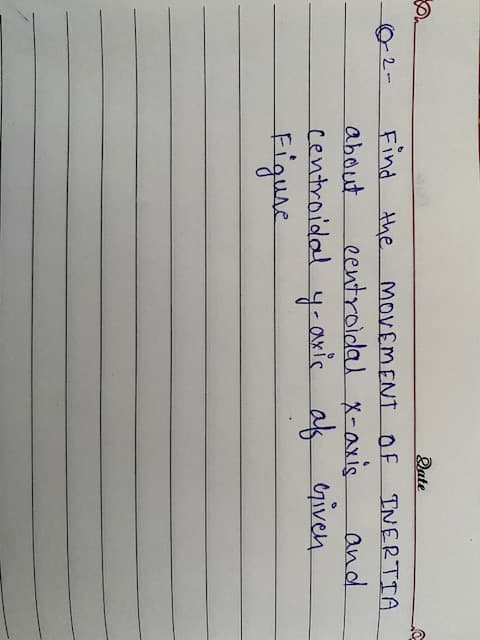 Date
Q2- Find the MOVEMENT OF INERTIA
about centroidal x-axis and
centroidal y-axis of Given
Figure